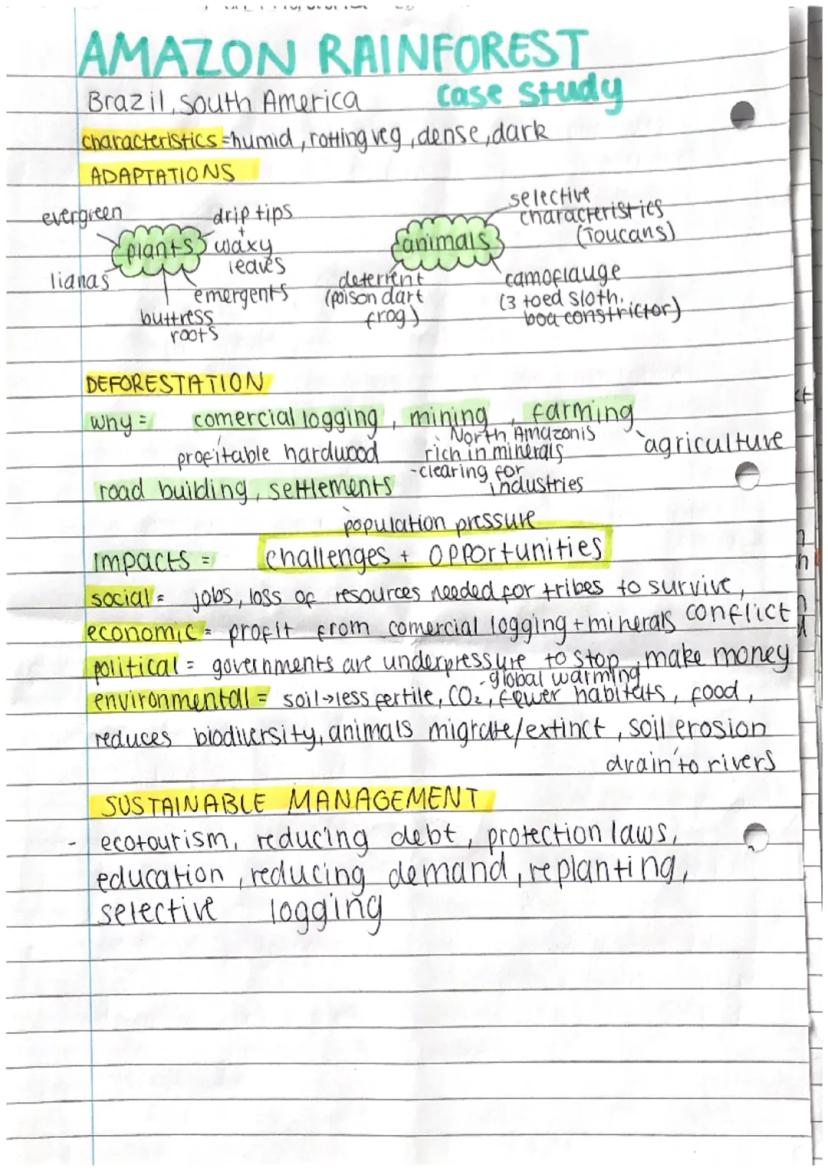 AMAZON RAINFOREST
Brazil, south America case study
characteristics = humid, rotting veg, dense, dark
ADAPTATIONS
evergreen
drip tips
+
waxy
leaves
plants
lianas
emergents
buttress
roots
selective
characteristics
(Toucans)
animals
deterrent
(poison dart
frog)
camoflauge
(3 toed sloth,
boa constrictor)
DEFORESTATION
why = comercial logging, mining, farming
profitable hardwood
North Amazonis
rich in minerals
- clearing for
industries
agriculture
road building, settlements
population pressure
impacts = challenges + opportunities
social = jobs, loss of resources needed for tribes to survive,
conflict
economic = profit from comercial logging + minerals
political = governments are underpressure to stop, make money
- global warming
environmental = soil → less fertile, CO₂, fewer habitats, food,
reduces biodiversity, animals migrate/extinct, soil erosion
drain to rivers
SUSTAINABLE MANAGEMENT
- ecotourism, reducing debt, protection laws,
education, reducing demand, replanting,
selective logging